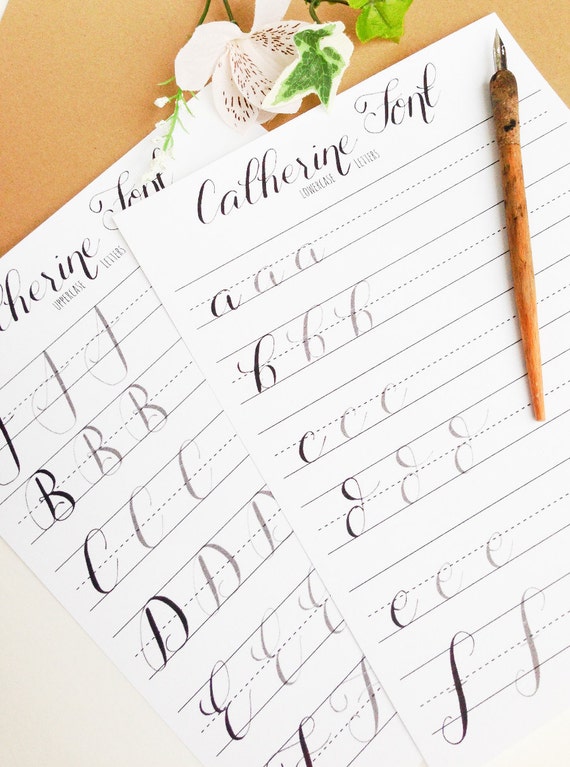 Catherine Font
LOWERCASE LETTERS
a a a
b b b
c c c
d d d
e e e
f f
therine Font
UPPERCASE LETTERS
A A A
B B B
C C C
D D D
E E E
F F